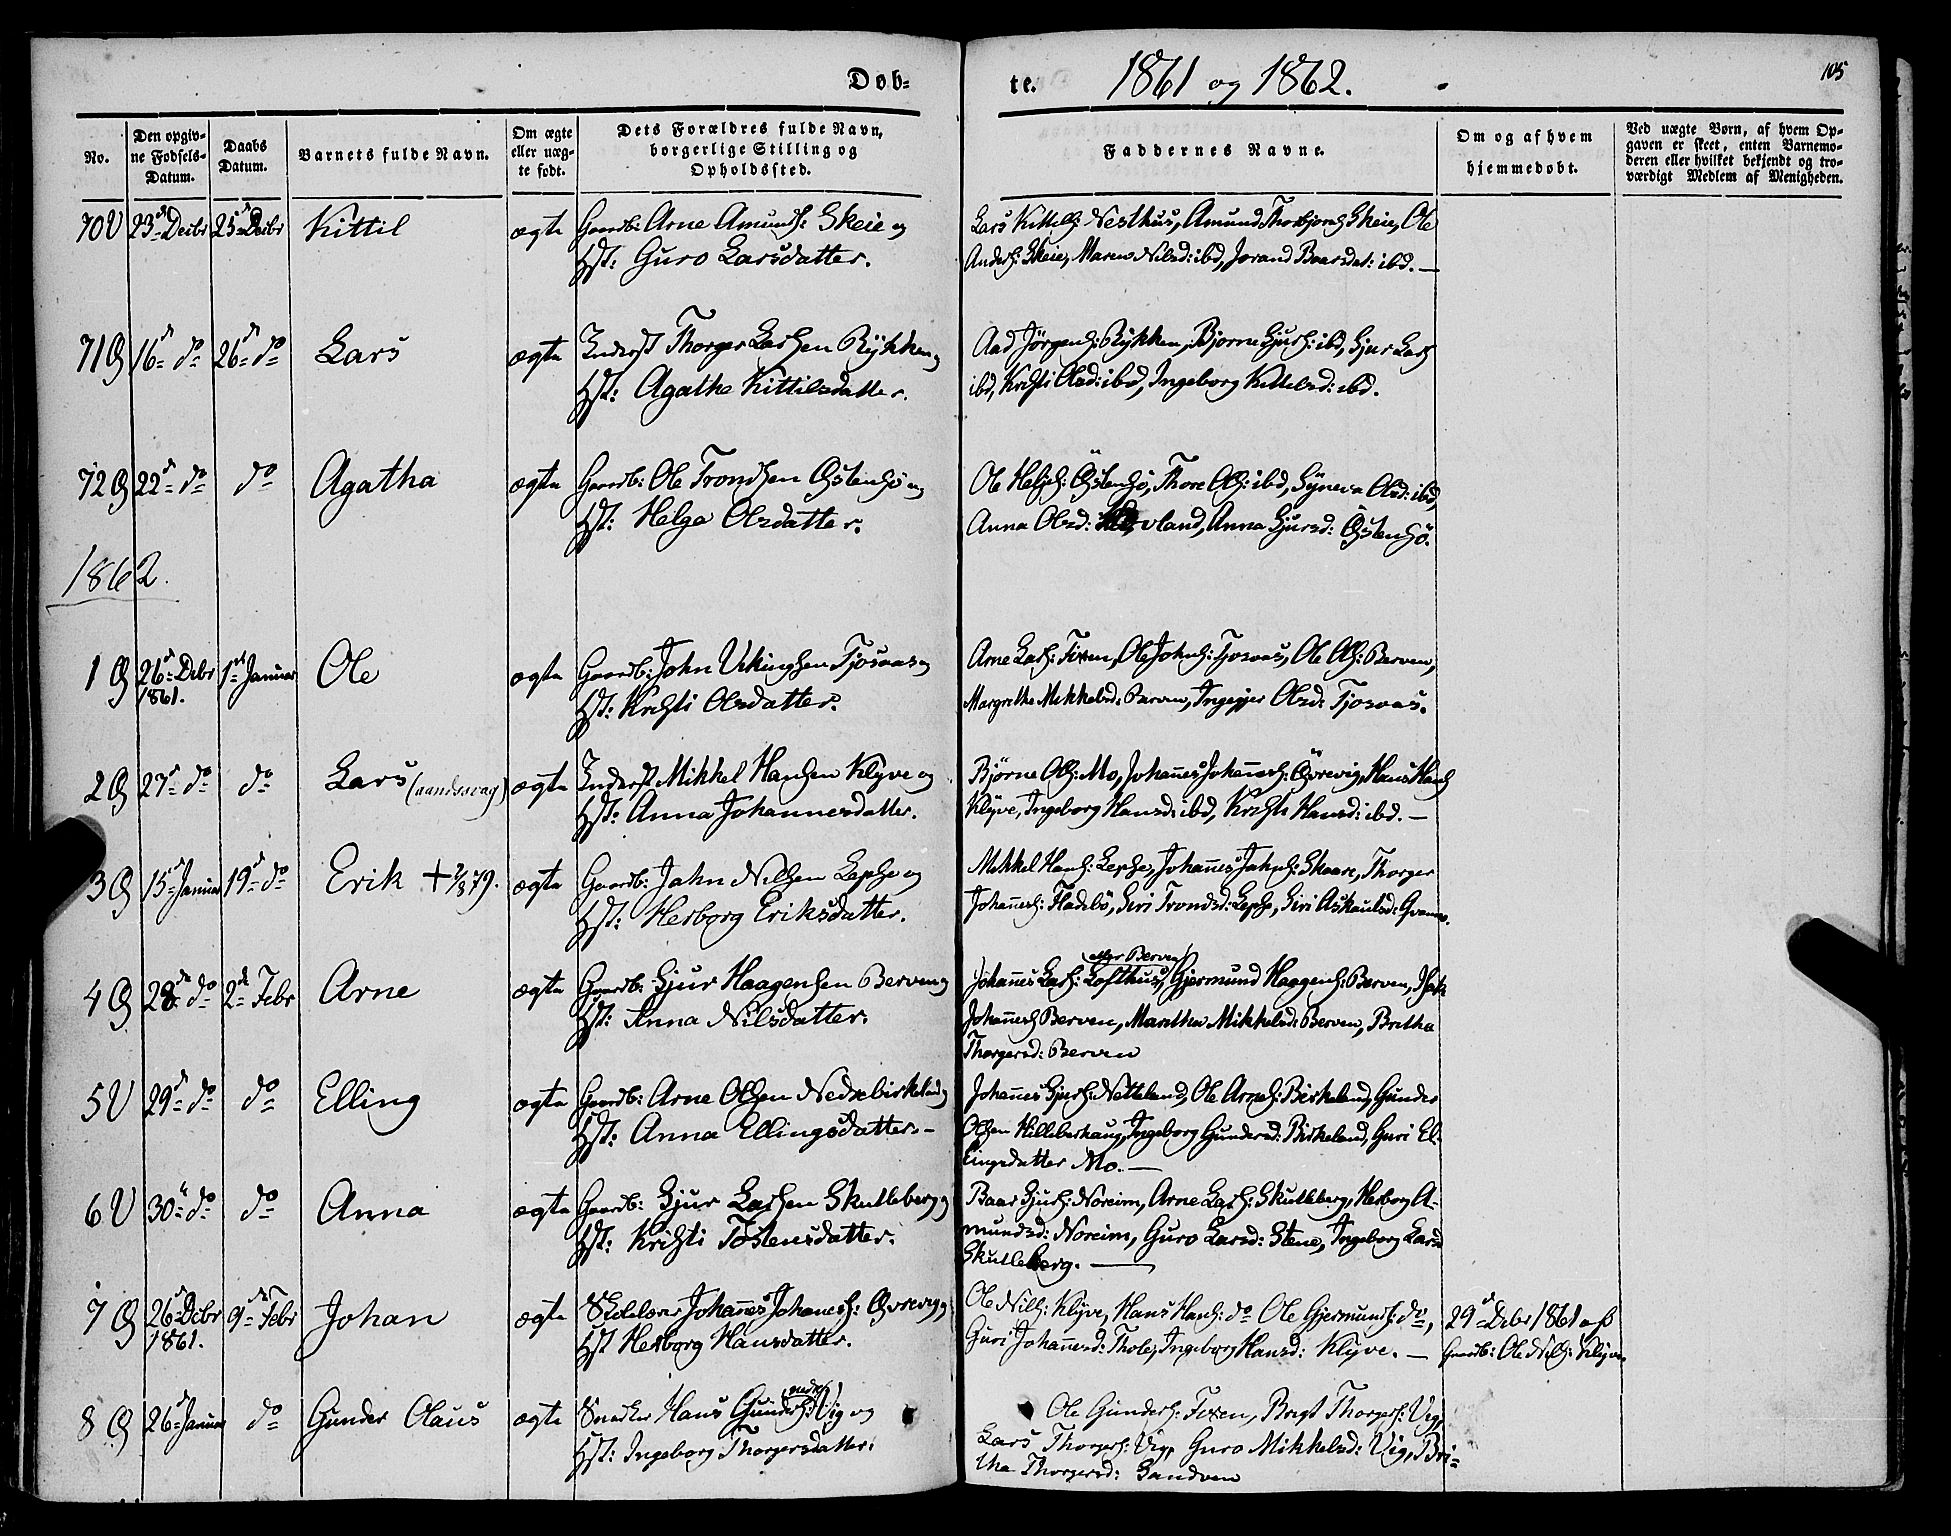 Døb-
te. 1861 og 1862.
105
No.
Den opgiv-
ne Fødsels-
Datum.
Daabs
Datum.
Barnets fulde Navn.
Om ægte
eller uæg-
te født.
Dets Forældres fulde Navn,
borgerlige Stilling og
Opholdssted.
Faddernes Navne.
Om og af hvem
hjemmedøbt.
Ved uægte Børn, af hvem Op-
gaven er skeet, enten Barnemo-
deren eller hvilket bekjendt og tro-
værdigt Medlem af Menigheden.
70 V 23d Decbr 25d Decbr Kittil ægte Gaardb: Arne Amunds: Skeie og
Hst: Guro Larsdatter.
Lars Kittels: Nesthus, Amund Thorbjørns Skeie, Ole
Anders: Skeie, Maren Nilsd: ibd, Jorand Baarsdat: ibd. —
71 Ø 16d do 26d do Lars ægte Inderst Thorger Larsen Rykken og
Hst: Agatha Kittilsdatter.
Aad Jörgens: Rykken, Bjorne Sjurs: ibd, Sjur Lars
ibd, Kristi Olsd: ibd, Ingeborg Kittelsd: ibd.
72 Ø 22d do do Agatha ægte Gaardb: Ole Trondsen Østensø og
Hst: Helga Olsdatter.
Ole Helges: Østensø, Thore Ols: ibd, Syneva Olsd: ibd,
Anna Olsd: vland, Anna Sjursd: Østensö.
1862.
1 Ø 26d Decbr 1st Januar Ole ægte Gaardb: John Vikingsen Tjosaas og
1861.
Hst: Kristi Olsdatter.
Arne Lars: Fixen, Ole Johns: Tjosaas, Ole Ols: Berven,
Margrethe Mikkelsd: Berven, Ingegjer Olsd: Tjosaas.
2 Ø 27d do do Lars (aandssvag) ægte Inderst Mikkel Hansen Klyve og
Hst: Anna Johannesdatter.
Bjørne Ols: Mo, Johannes Johannes: Øvrevig, Hans Hans
Klyve, Ingeborg Hansd: ibd, Kristi Hansd: ibd. —
3 Ø 15d Januar 19d do Erik + 2/8 79. ægte Gaardb: John Nilsen Lepsø og
Hst: Herborg Eriksdatter.
Mikkel Hans: Lepsø, Johannes Johns: Skaare, Thorger
Johannes: Fladebö, Siri Trondsd: Lepsø, Siri Askoulsd: Qvamme.
4 Ø 28de do 2de Febr Arne ægte Gaardb: Sjur Haagensen Berven og
Hst: Anna Nilsdatter.
eller Berven
Johannes Lars: Lofthus, Gjermund Haagens: Berven, Isak
Johannes Berven, Maritha Mikkelsd: Berven, Britha
Thorgersd: Berven
5 V 29d do do Elling ægte Gaardb: Arne Olsen Nedrebirkeland og
Hst: Anna Ellingsdatter.
Johannes Sjurs: Netteland, Ole Arnes: Birkeland, Gunder
Olsen Hilleberhaug, Ingeborg Gundersd: Birkeland, Guri El-
lingsdatter Mo. —
6 V 30te do do Anna ægte Gaardb: Sjur Larsen Skutleberg og
Hst: Kristi Tostensdatter.
Baar Sjurs: Noreim, Arne Lars: Skutleberg, Herborg A-
mundsd: Noreim, Guro Larsd: Stene, Ingeborg Larsd
Skutleberg. —
7 Ø 26d Decbr 9de Febr Johan ægte Skolelærer Johannes Johannes: Øvrevig og
1861.
Hst Herborg Hansdatter.
Ole Nils: Klyve, Hans Hans: do Ole Gjermunds: do,
Guri Johannesd: Thole, Ingeborg Hansd: Klyve. —
29d Decbr 1861 af
Gaardb: Ole Nils: Klyve
8 Ø 26d Januar do Gunder Olaus ægte Snedker Hans Gunders: (nedre) Vig og
Hst: Ingeborg Thorgersdatter.
Ole Gunders: Fixen, Brigt Thorgers: Vig,
Lars Thorgers: Vig, Guro Mikkelsd: Vig, Bri-
tha Thorgersd: Sandven